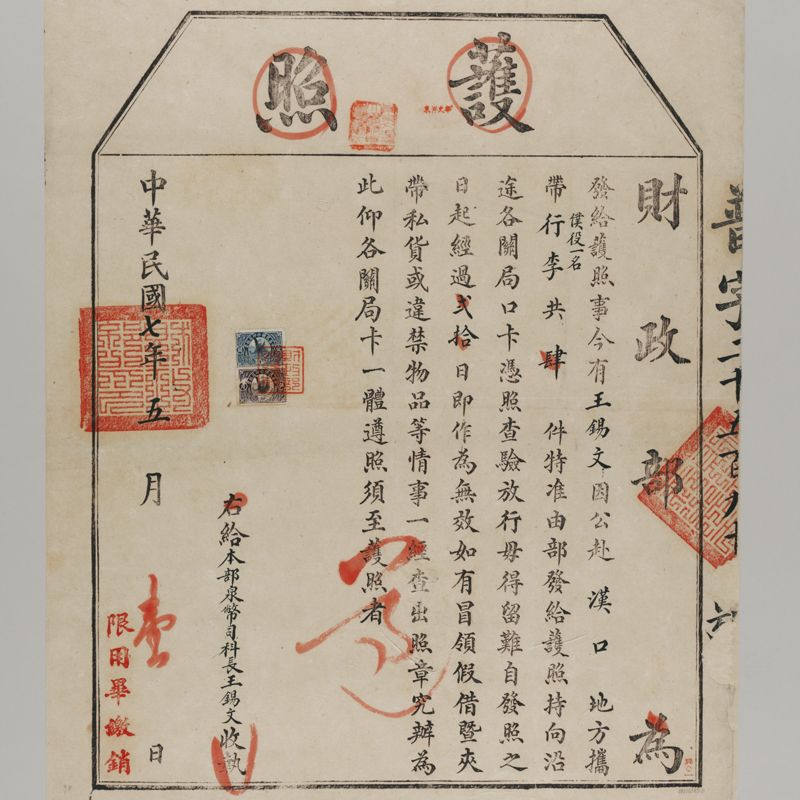 護照
財政部為
發給護照事今有王錫文因公赴漢口地方攜
帶僕役一名行李共肆件特准由部發給護照持向沿
途各關局口卡憑照查驗放行毋得留難自發照之
日起經過貳拾日即作為無效如有冒領假借暨夾
帶私貨或違禁物品等情事一經查出照章究辦為
此仰各關局卡一體遵照須至護照者
右給本部泉幣司科長王錫文收執
中華民國七年五月壹日
限用畢繳銷